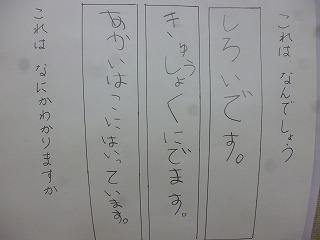 これは なんでしょう
しろいです。
きゅうしょくにでます。
あかいはこにはいっています。
これは なにかわかりますか